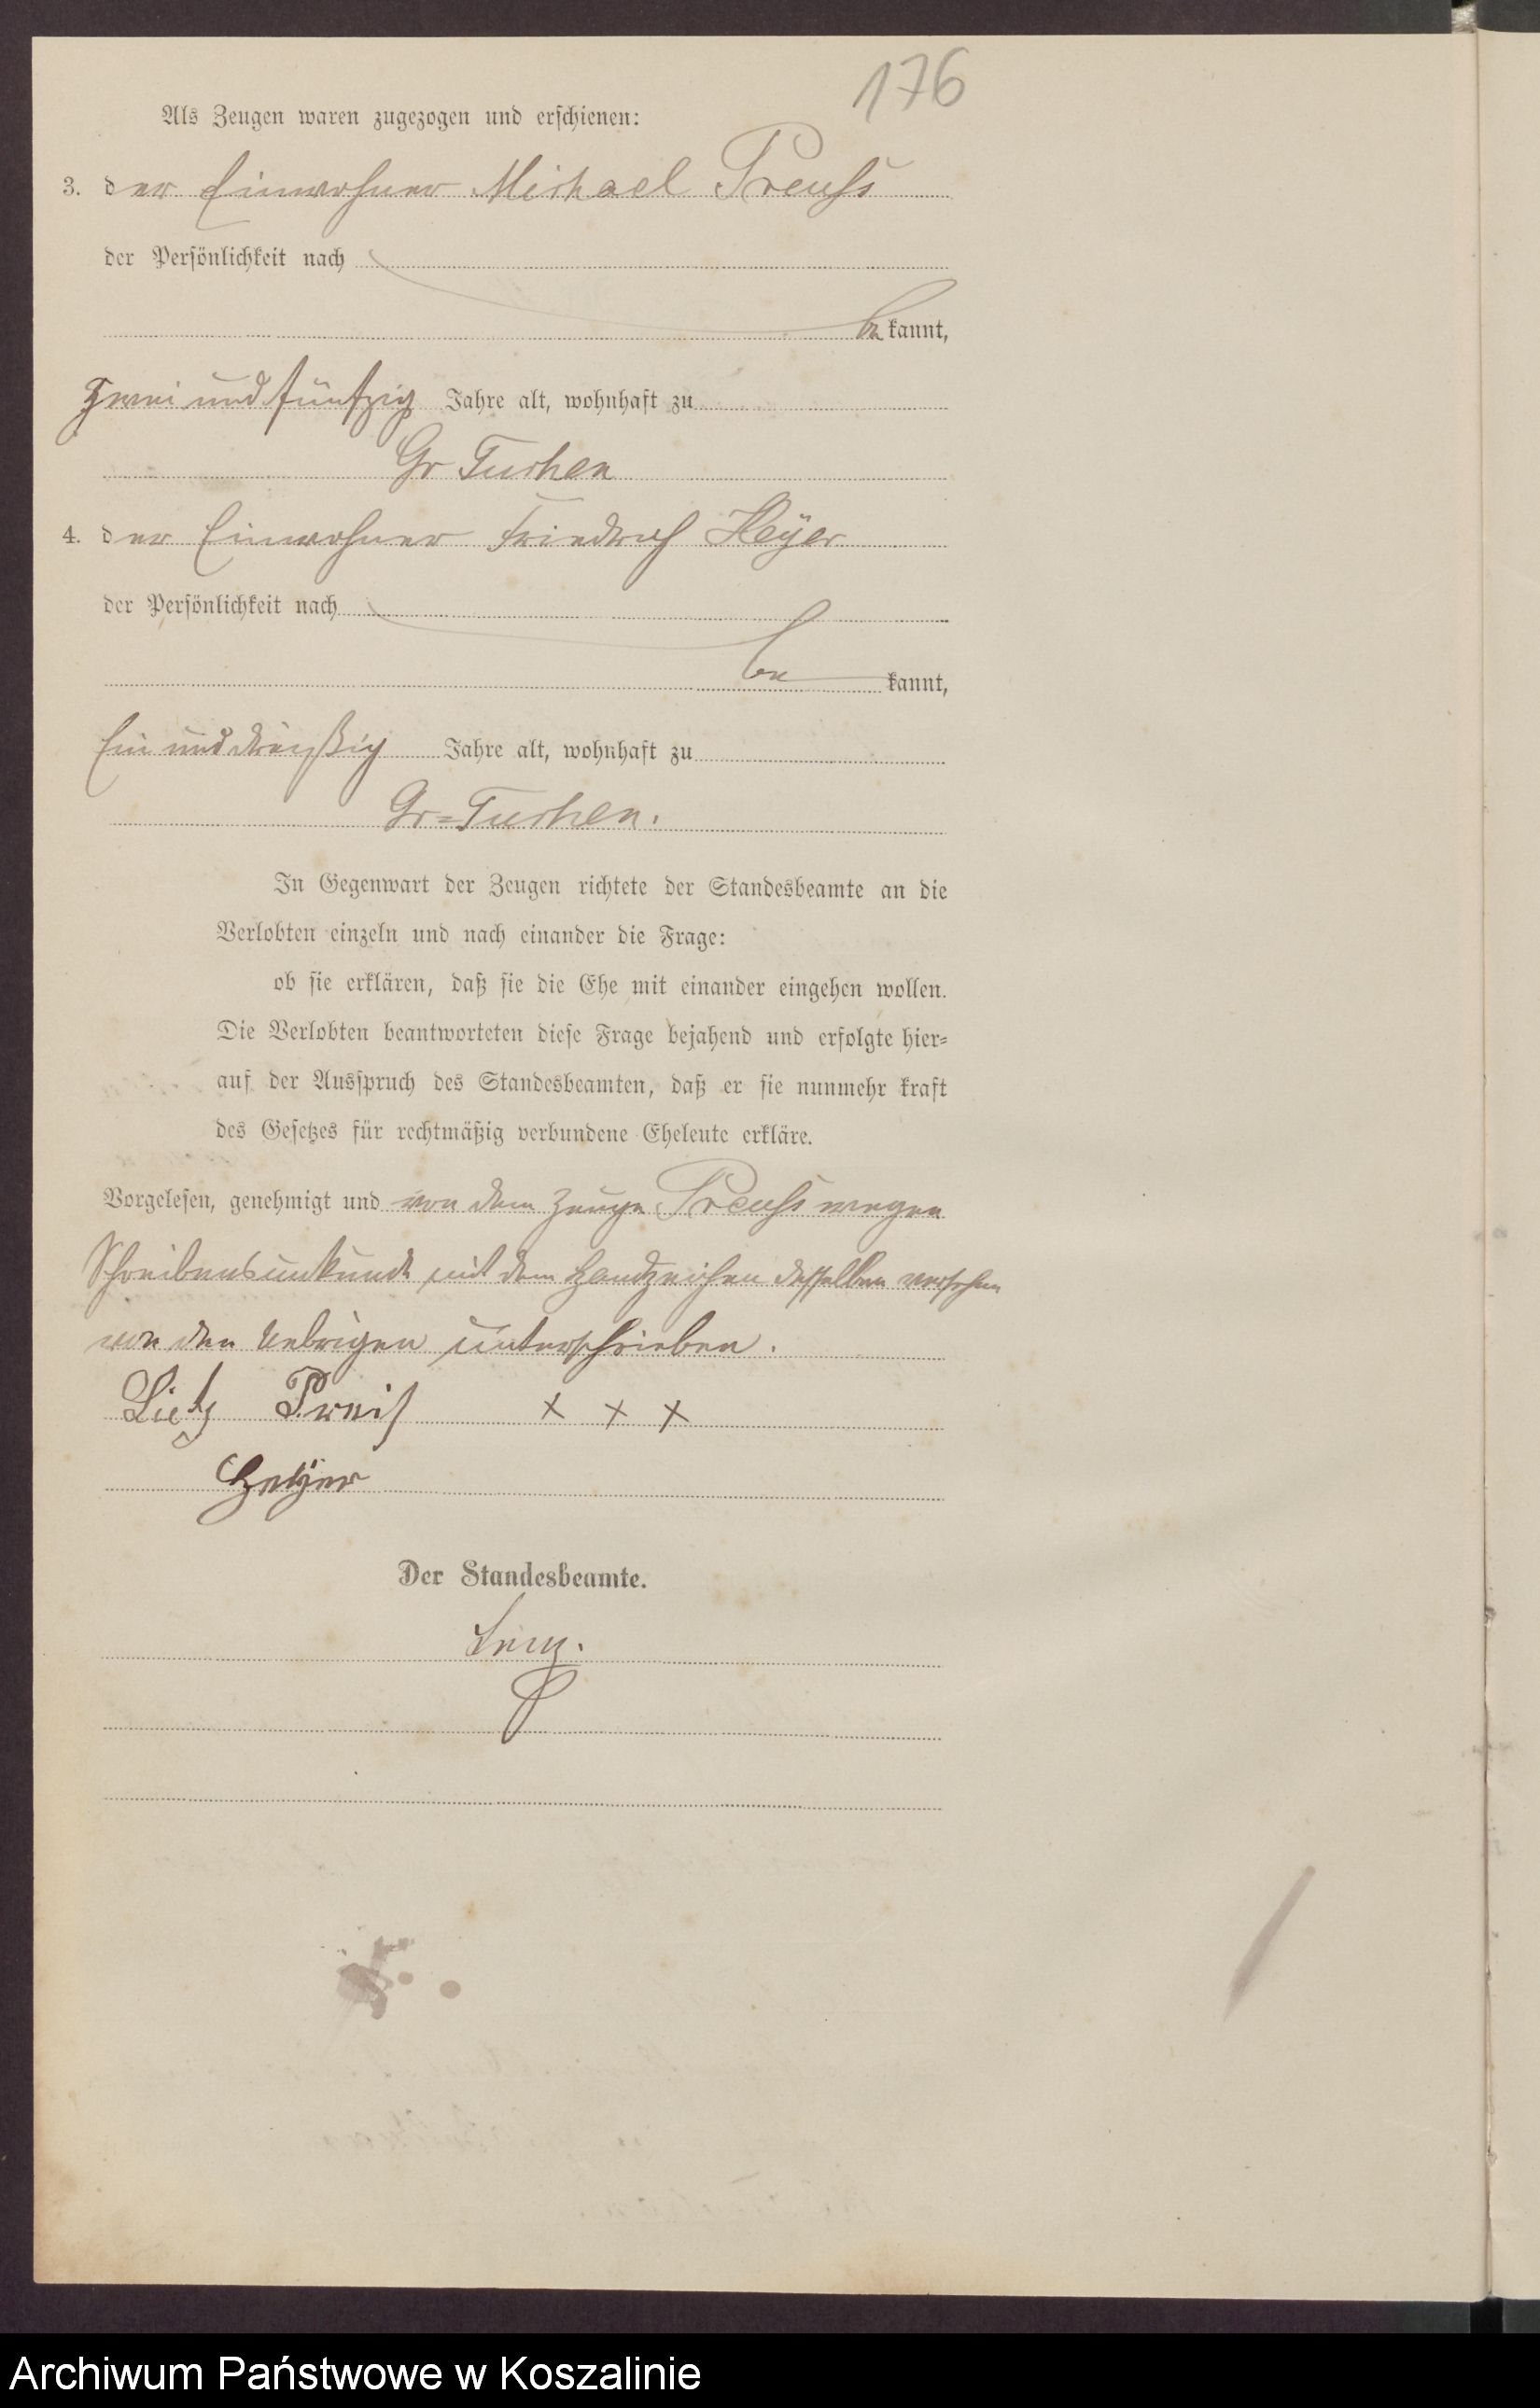 176
Als Zeugen waren zugezogen und erschienen:
3. der Einwohner Michael Preuß
der Persönlichkeit nach
be kannt,
zwei und fünfzig Jahre alt, wohnhaft zu
Gr Tuchen
4. der Einwohner Friedrich Heÿer
der Persönlichkeit nach
be kannt,
Ein und dreißig Jahre alt, wohnhaft zu
Gr=Tuchen.
In Gegenwart der Zeugen richtete der Standesbeamte an die
Verlobten einzeln und nach einander die Frage:
ob sie erklären, daß sie die Ehe mit einander eingehen wollen.
Die Verlobten beantworteten diese Frage bejahend und erfolgte hier=
auf der Ausspruch des Standesbeamten, daß er sie nunmehr kraft
des Gesetzes für rechtmäßig verbundene Eheleute erkläre.
Vorgelesen, genehmigt und von dem Zeuge Preuß wegen
Schreibensunkunde mit dem Handzeichen desselben versehen
von den Uebrigen unterschrieben.
Lietz x x x
Heÿer
Der Standesbeamte.
Archiwum Państwowe w Koszalinie